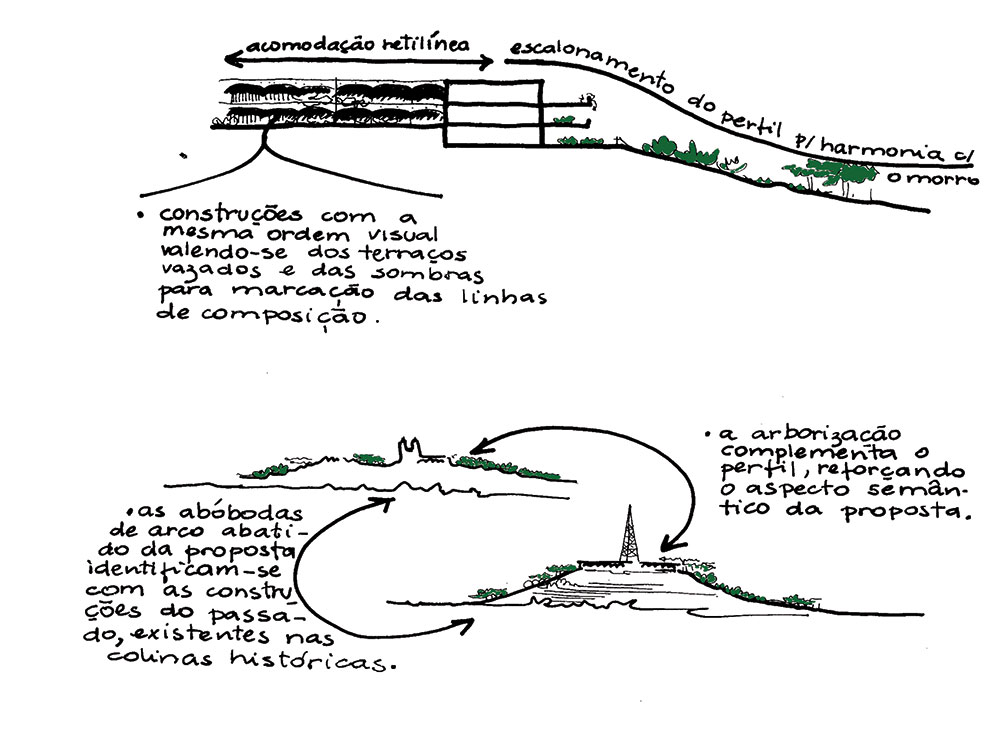 acomodação retilínea
escalonamento do perfil p/ harmonia c/
o morro
• construções com a
mesma ordem visual
valendo-se dos terraços
vazados e das sombras
para marcação das linhas
de composição.
• a arborização
complementa o
perfil, reforçando
o aspecto semân-
tico da proposta.
• as abóbodas
de arco abati-
do da proposta
identificam-se
com as constru-
ções do passa-
do, existentes nas
colinas históricas.